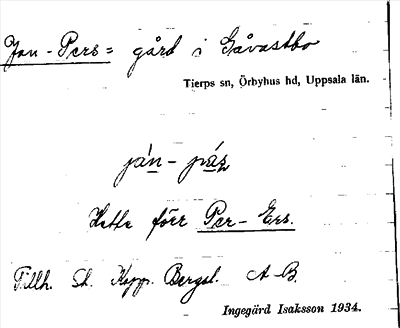 Jan-Pers= gård i Gåvastbo
Tierps sn, Örbyhus hd, Uppsala län.
jàn-pás
Hette förr Per-Ers.
Tillh. St. Kopp. Bergsl. A-B.
Ingegärd Isaksson 1934.